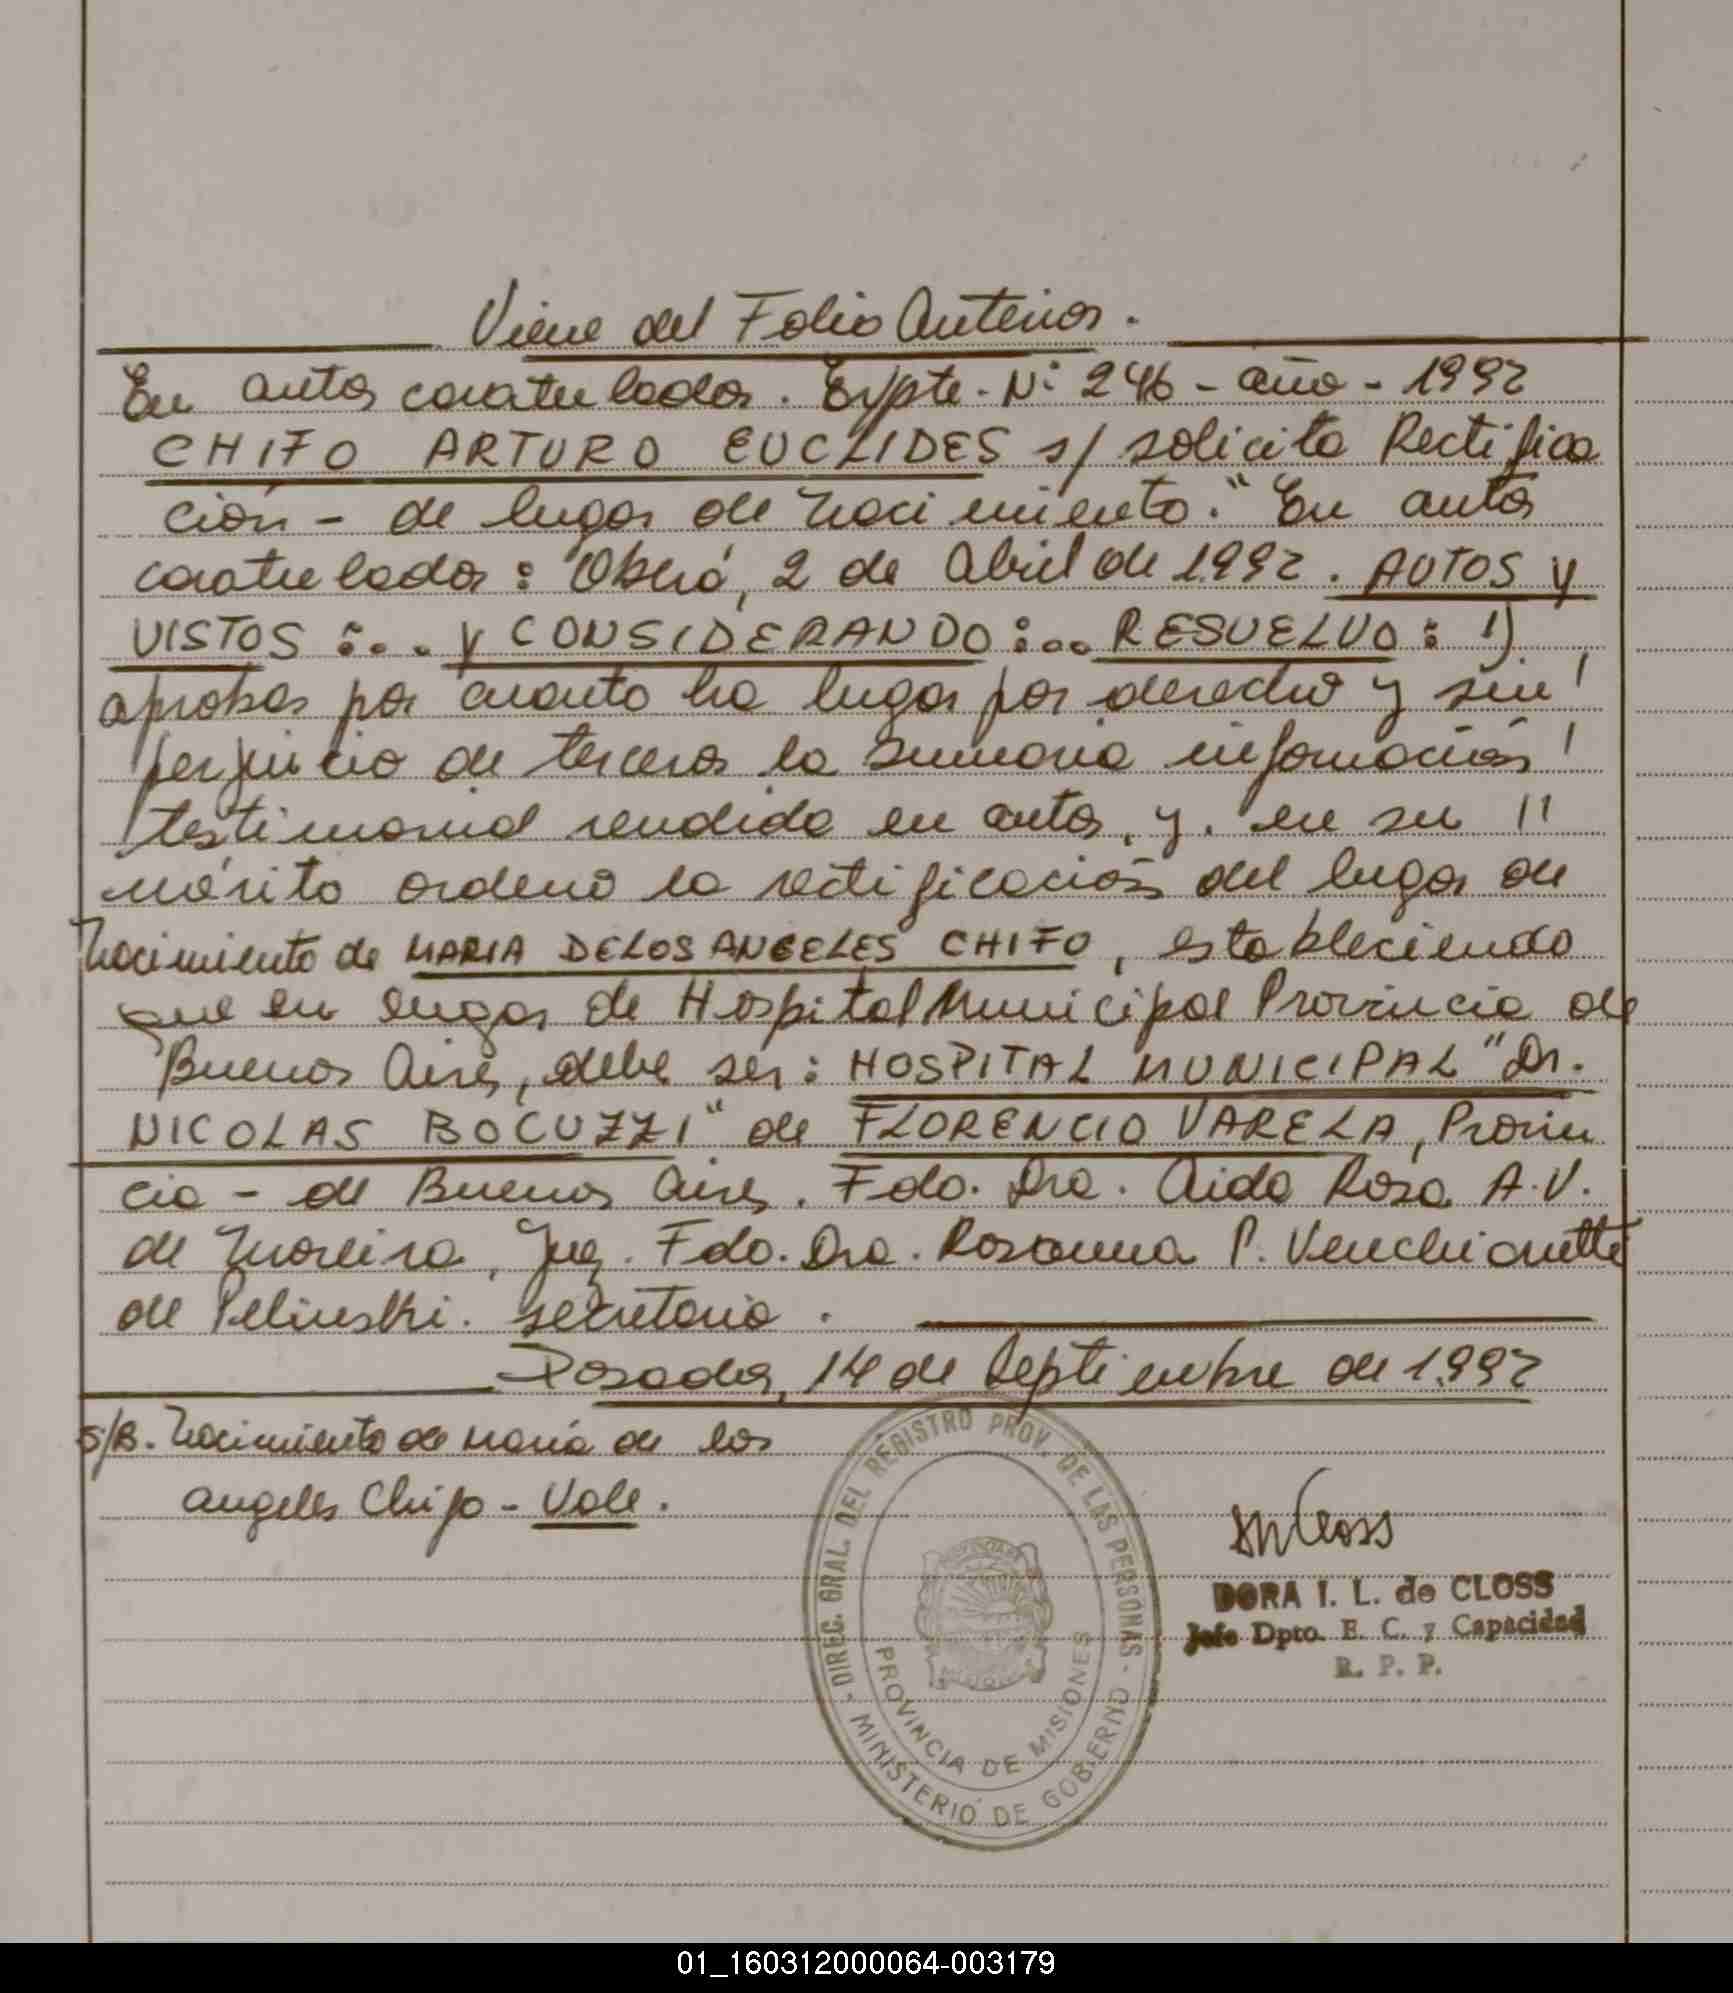 Viene del Folio Anterior.
En autos caratulados. Expte. Nº 246 - año - 1992
CHIFO ARTURO EUCLIDES s/ solicita Rectifica
ción - de lugar de Nacimiento." En autos
caratulados: Oberá, 2 de Abril de 1992. AUTOS y
VISTOS :... y CONSIDERANDO :... RESUELVO : 1)
aprobar por cuanto ha lugar por derecho y sin /
perjuicio de terceros la sumaria información /
testimonial rendida en autos, y. en su //
mérito ordeno la rectificación del lugar de
Nacimiento de MARIA DE LOS ANGELES CHIFO, estableciendo
que en lugar de Hospital Municipal Provincia de
Buenos Aires, debe ser: HOSPITAL MUNICIPAL "Dr.
NICOLAS BOCUZZI" de FLORENCIO VARELA, Provin
cia - de Buenos Aires. Fdo. Dra. Aida Rosa A.V.
de Moreira, Juez. Fdo. Dra. Rosanna P. Venchiarutti
de Pelinski. secretaria.
Posadas, 14 de Septiembre de 1.992
S/B. Nacimiento de María de los
angeles Chifo - Vale.
DIREC. GRAL. DEL REGISTRO PROV. DE LAS PERSONAS - MINISTERIO DE GOBIERNO -
PROVINCIA DE MISIONES
DORA I. L. de CLOSS
Jefe Dpto. E. C. y Capacidad
R. P. P.
01_160312000064-003179